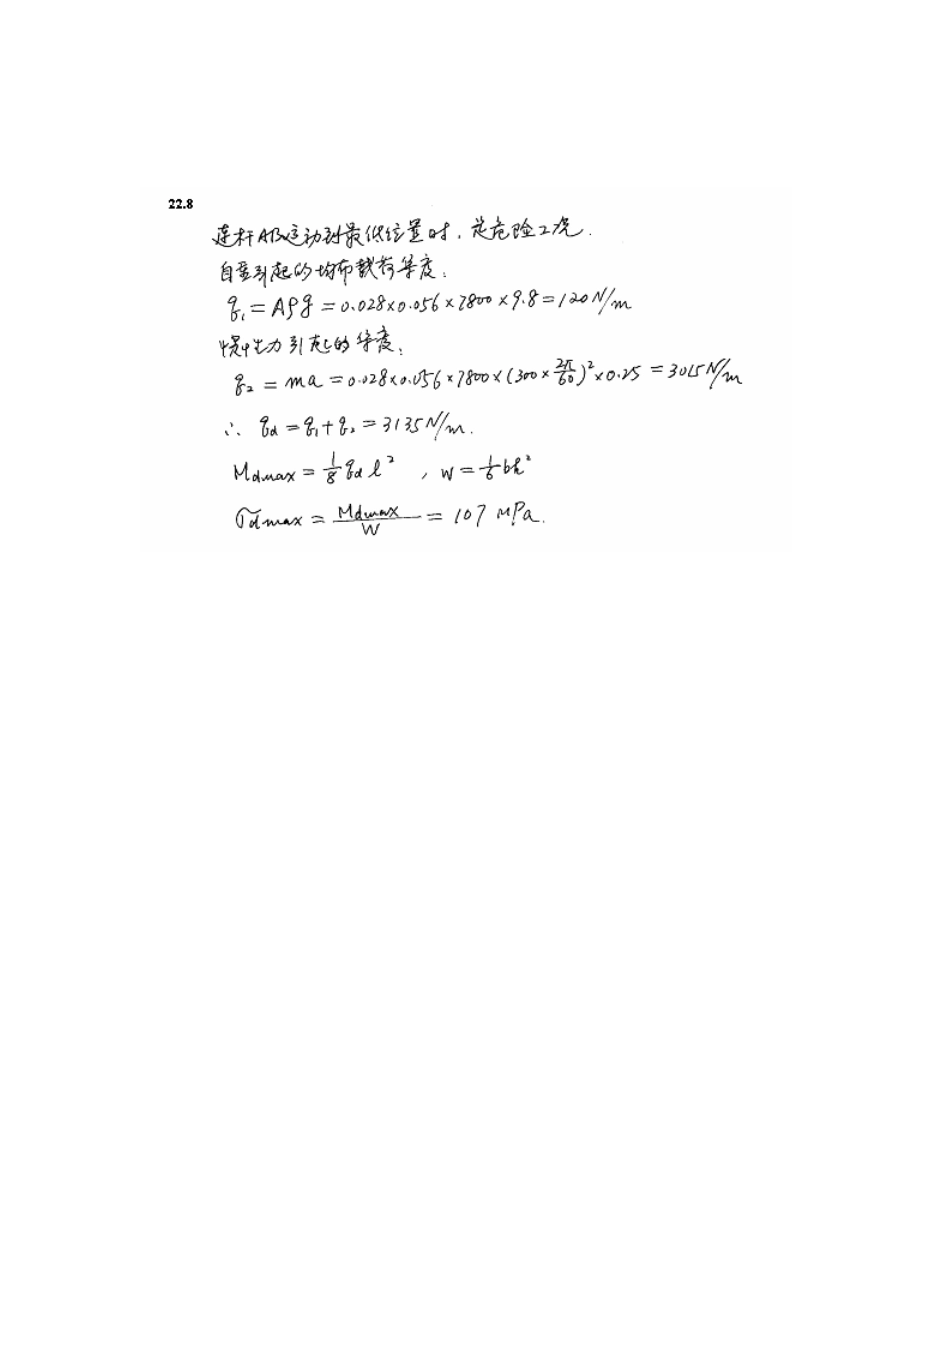 22.8
连杆AB运动到最低位置时，是危险工况.
自重引起的均布载荷集度：
q₁ = Aρg = 0.028×0.056×7800×9.8 = 120 N/m
惯性力引起的集度：
q₂ = ma = 0.028×0.056×7800×(300×2π/60)²×0.25 = 3015 N/m
∴ qd = q₁+q₂ = 3135 N/m.
Mdmax = 1/8 qd l² , W = 1/6 bh²
σdmax = Mdmax/W = 107 MPa.